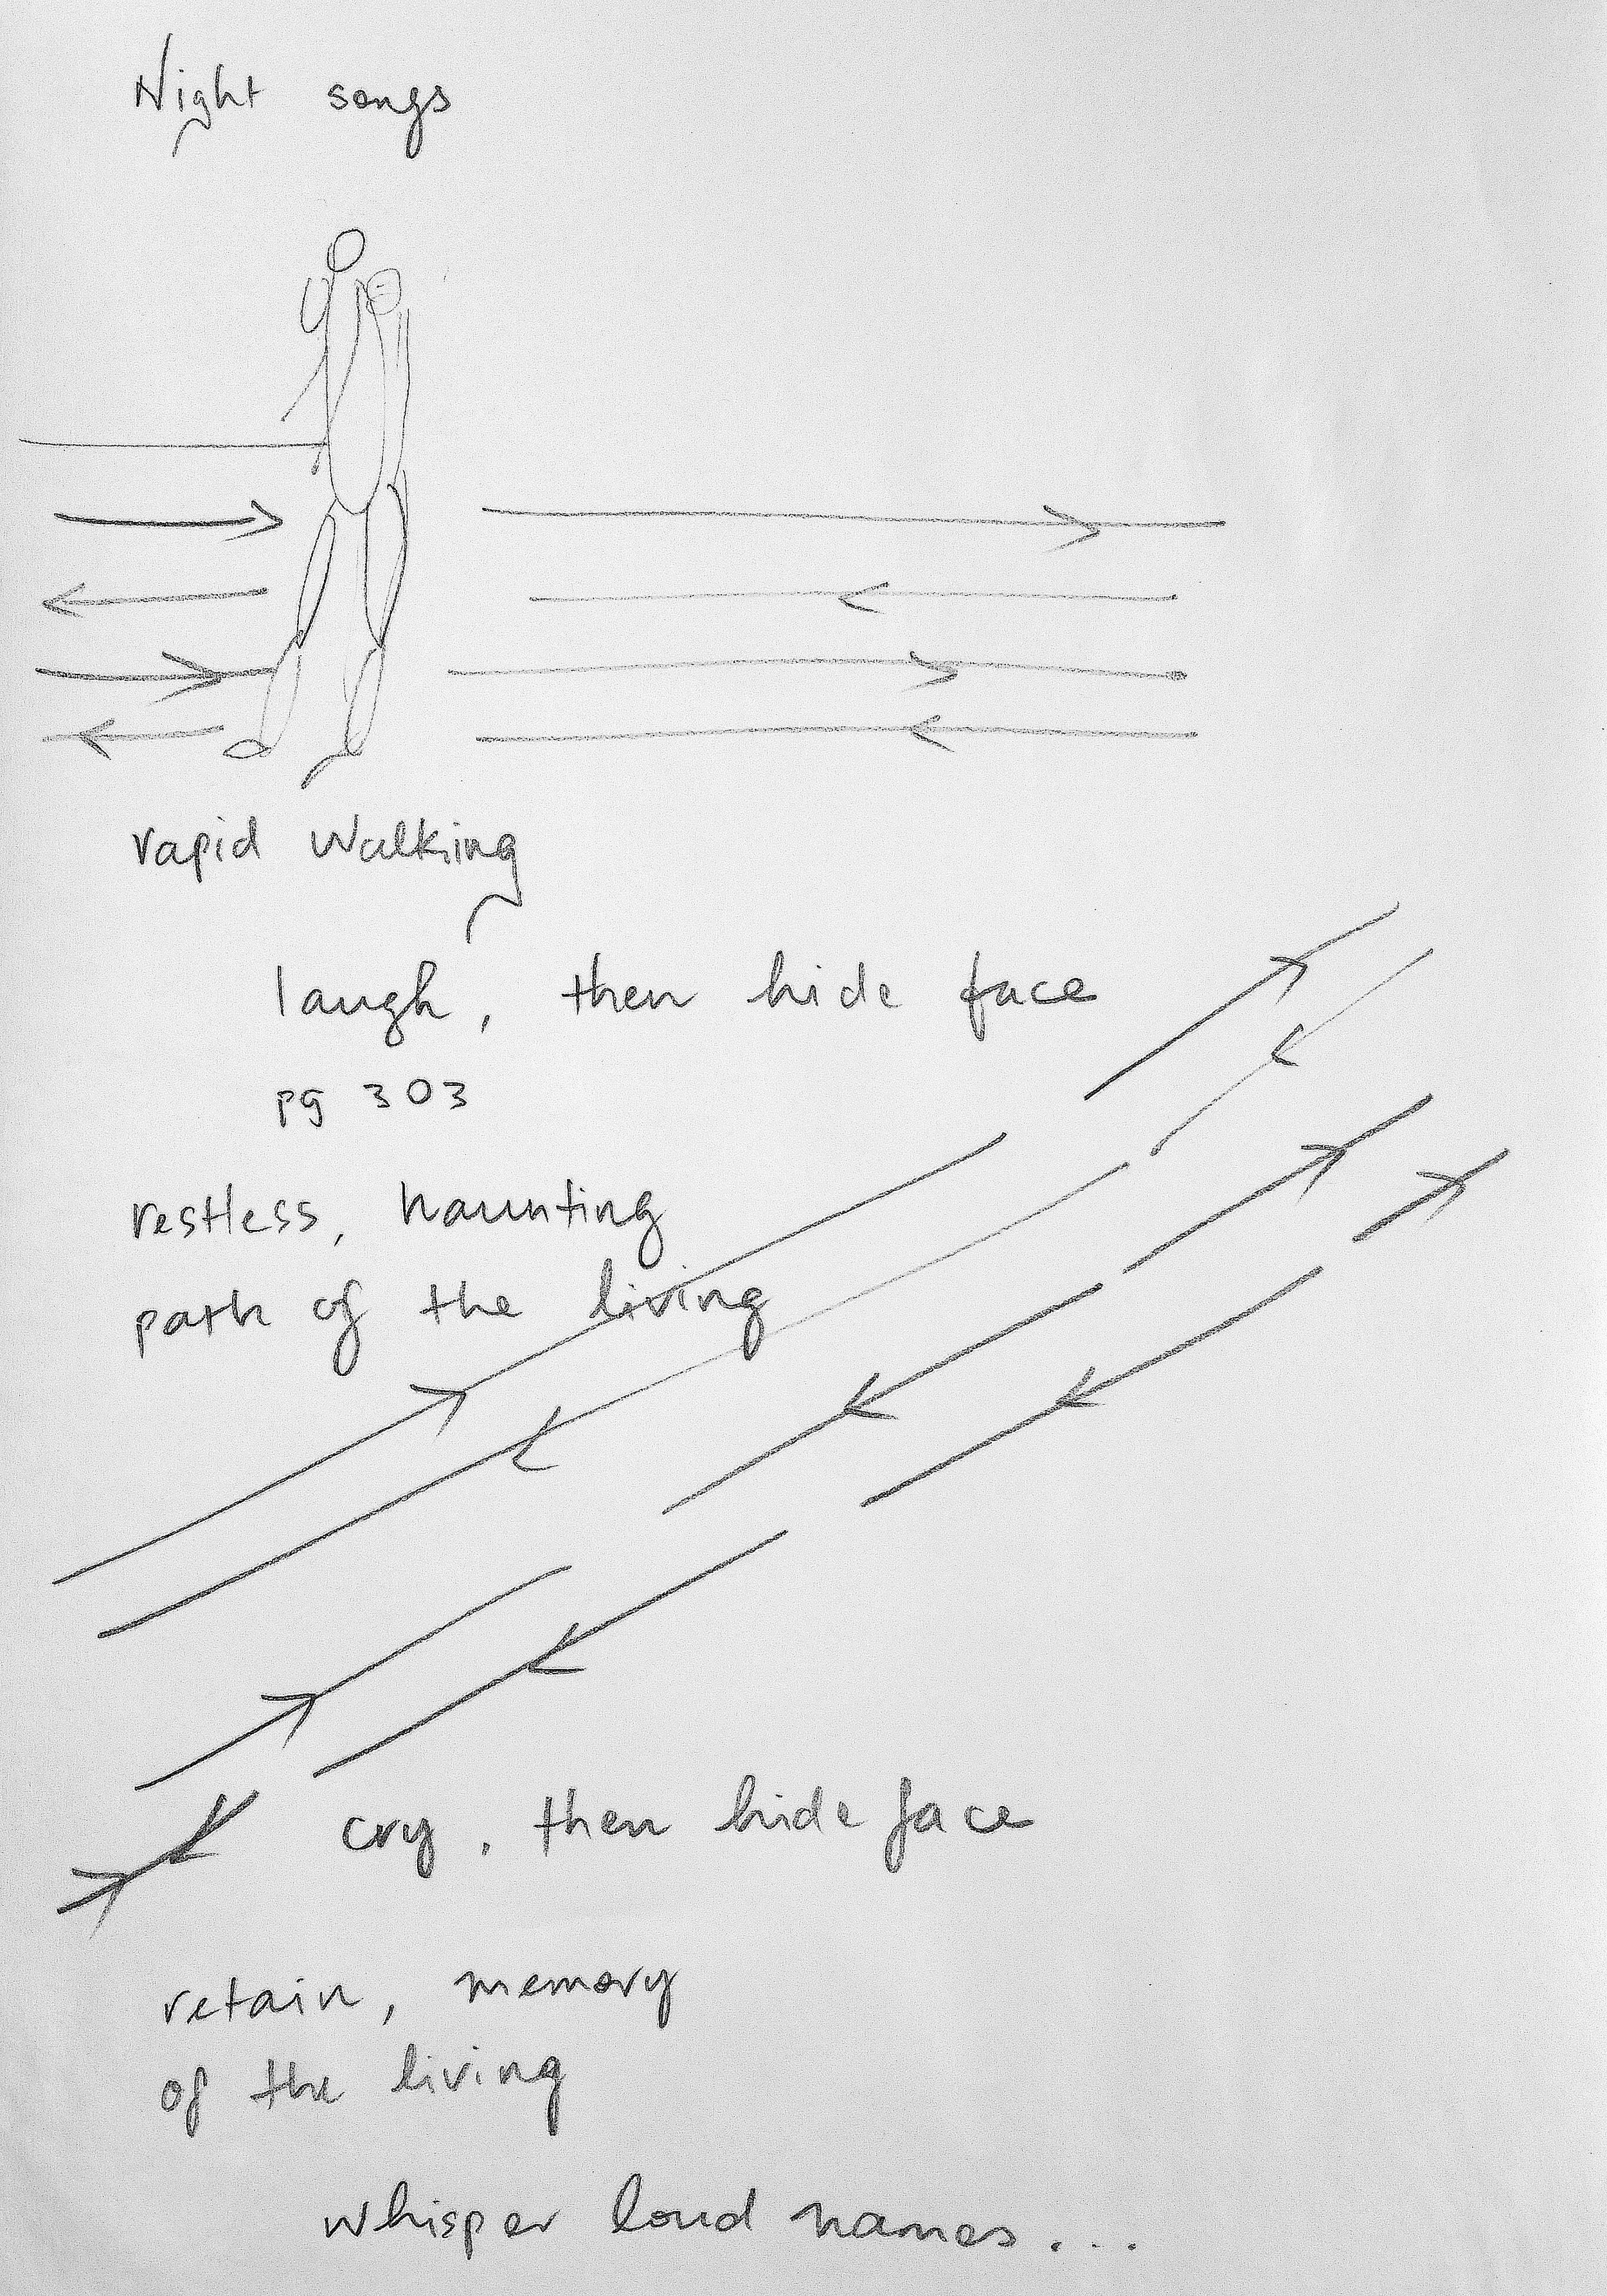 Night songs
rapid walking
laugh, then hide face
pg 303
restless, haunting
path of the living
cry, then hide face
retain, memory
of the living
whisper loud names...